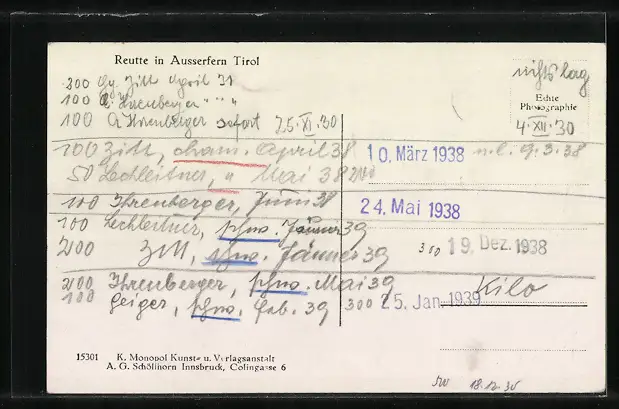 Reutte in Ausserfern Tirol
200 Zitt April 31
100 Ihrenberger " " "
100 Ihrenberger sofort 25.XI.30
nichts lag
Echte
Photographie
4.XII.30
100 Zitt, cham. April 38 10. März 1938 9.3.38
50 Lechleitner, " Mai 38
100 Ihrenberger, Juni 38 24. Mai 1938
100 Lechleitner, Jänner 39
200 Zitt, Jänner 39 300 19. Dez. 1938
200 Ihrenberger, Mai 39 Kilo
100 Geiger, Feb. 39 300 25. Jan. 1939
15301 K. Monopol Kunst- u. Verlagsanstalt
A. G. Schöllhorn Innsbruck, Colingasse 6